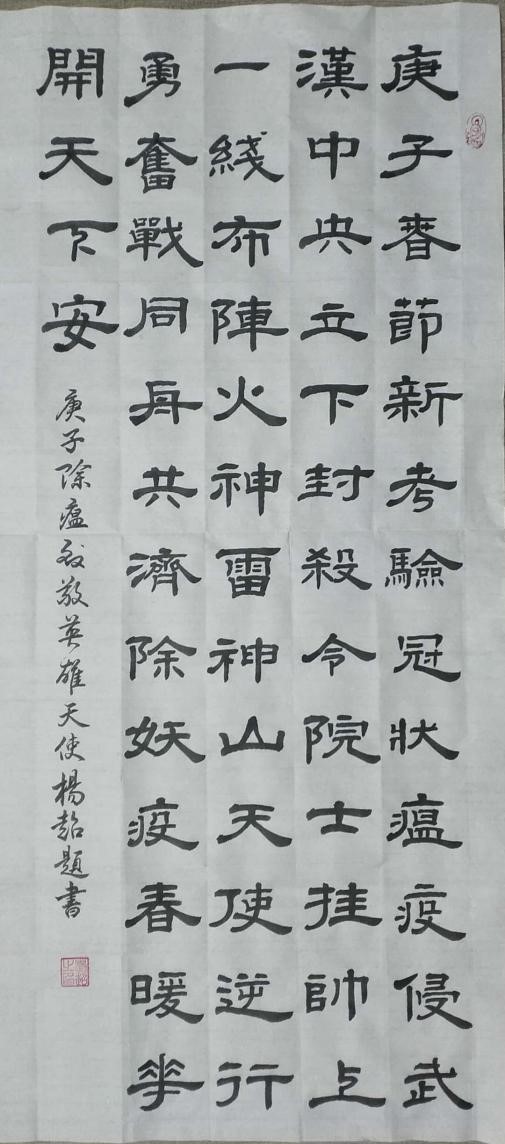 庚子春節新考驗冠狀瘟疫侵武
漢中央立下封殺令院士挂帥上
一綫布陣火神雷神山天使逆行
勇奮戰同舟共濟除妖疫春暖華
開天下安
庚子除瘟致敬英雄天使楊韶題書